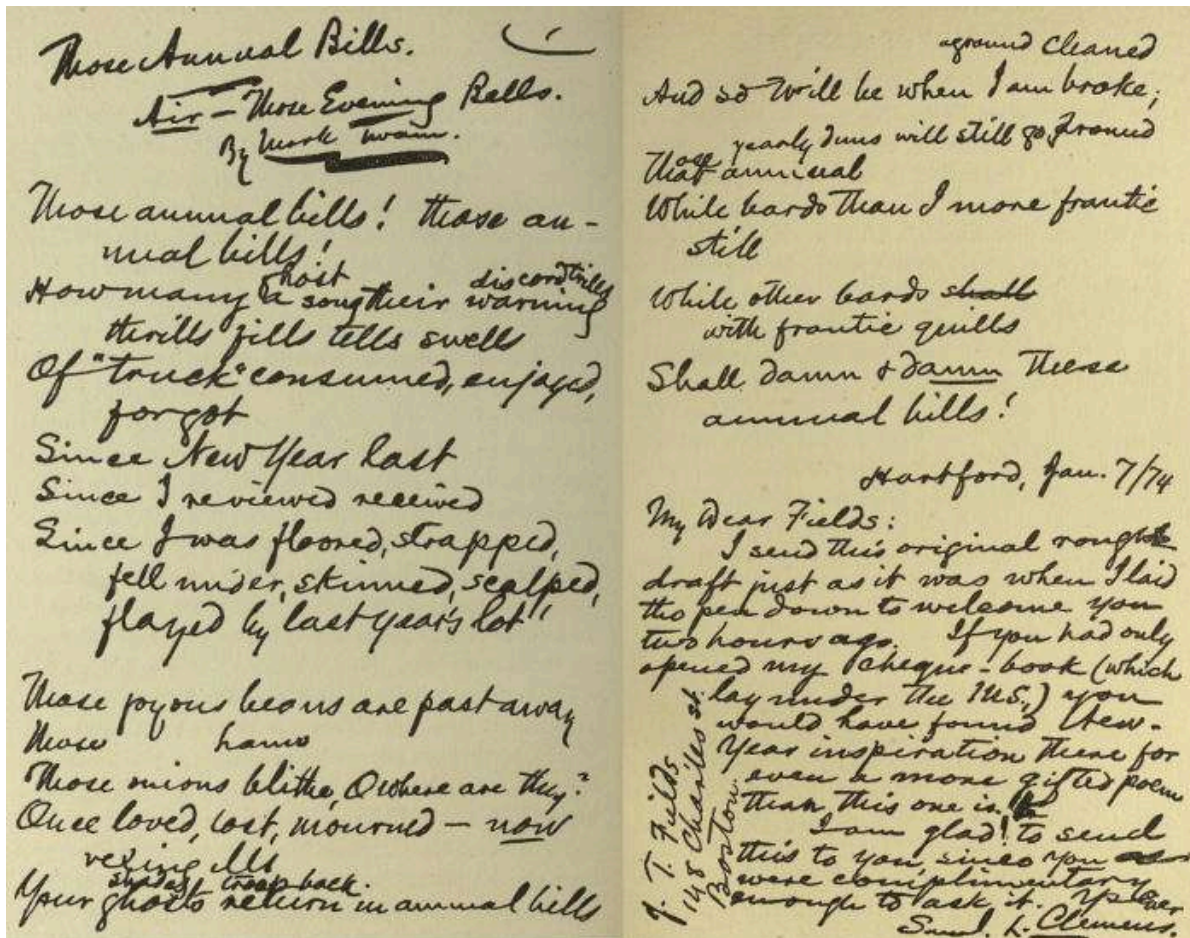 Those Annual Bills.
Air – Those Evening Bells.
By Mark Twain.
Those annual bills! those an-
nual bills!
host discord trills
How many a song their warning
thrills fills tells swells
Of "truck" consumed, enjoyed,
forgot
Since New Year last
Since I reviewed received
Since I was floored, strapped,
fell under, skinned, scalped,
flayed by last year's lot!
Those joyous beans are past away
Those hams
Those onions blithe, O where are they?
Once loved, lost, mourned – now
vexing ills
shades troop back.
Your ghosts return in annual bills
aground cleaned
And so 'twill be when I am broke;
yearly duns will still go round
Those
That annual
While bards than I more frantic
still
While other bards shall
with frantic quills
Shall damn & damn These
annual bills!
Hartford, Jan. 7/74
My Dear Fields:
I send this original rough
draft just as it was when I laid
the pen down to welcome you
two hours ago. If you had only
opened my cheque-book (which
lay under the MS.,) you
would have found New-
Year inspiration there for
even a more gifted poem
than this one is.
I am glad to send
this to you, since you
were complimentary
enough to ask it. Ys Ever
Saml. L. Clemens.
J. T. Fields
148 Charles st
Boston.